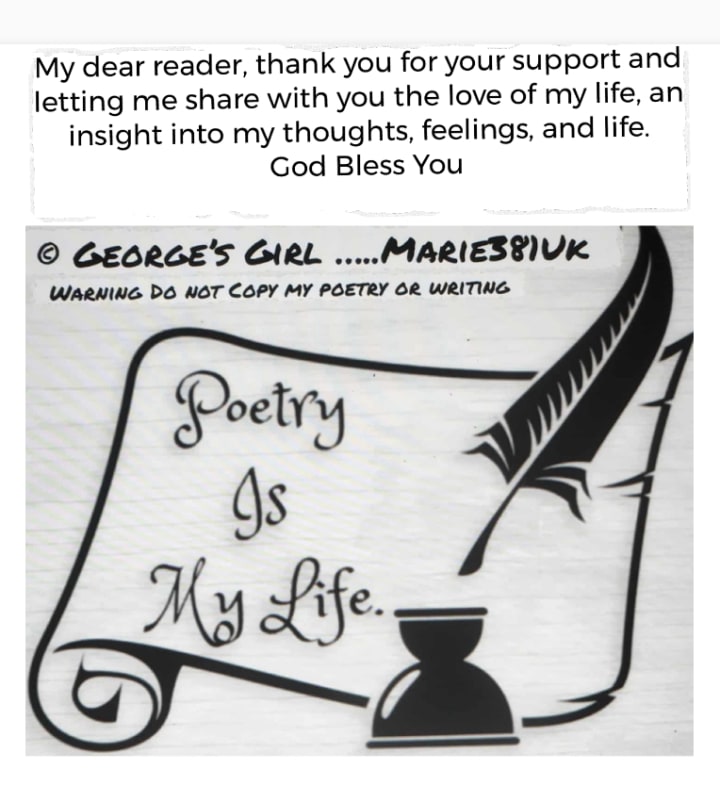 My dear reader, thank you for your support and
letting me share with you the love of my life, an
insight into my thoughts, feelings, and life.
God Bless You
© GEORGE'S GIRL .....MARIE381UK
WARNING DO NOT COPY MY POETRY OR WRITING
Poetry
Is
My Life.